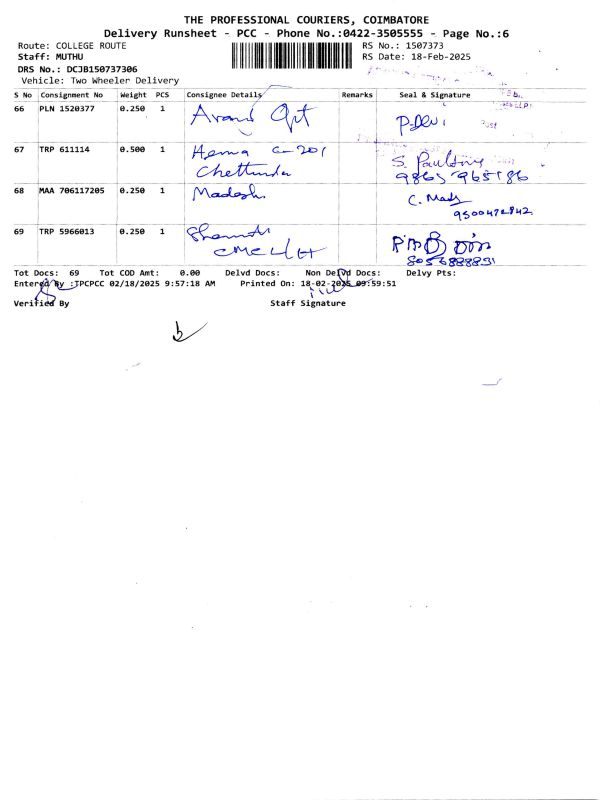 THE PROFESSIONAL COURIERS, COIMBATORE
Delivery Runsheet - PCC - Phone No.:0422-3505555 - Page No.:6
Route: COLLEGE ROUTE RS No.: 1507373
Staff: MUTHU RS Date: 18-Feb-2025
DRS No.: DCJB150737306
Vehicle: Two Wheeler Delivery
S No Consignment No Weight PCS Consignee Details Remarks Seal & Signature
66 PLN 1520377 0.250 1 P.Devi
67 TRP 611114 0.500 1 Hema C-201
68 MAA 706117205 0.250 1 Madesh C. Mads
9500472842
69 TRP 5966013 0.250 1
CMC
8056888891
Tot Docs: 69 Tot COD Amt: 0.00 Delvd Docs: Non Delvd Docs: Delvy Pts:
Entered By :TPCPCC 02/18/2025 9:57:18 AM Printed On: 18-02-2025 09:59:51
Verified By Staff Signature